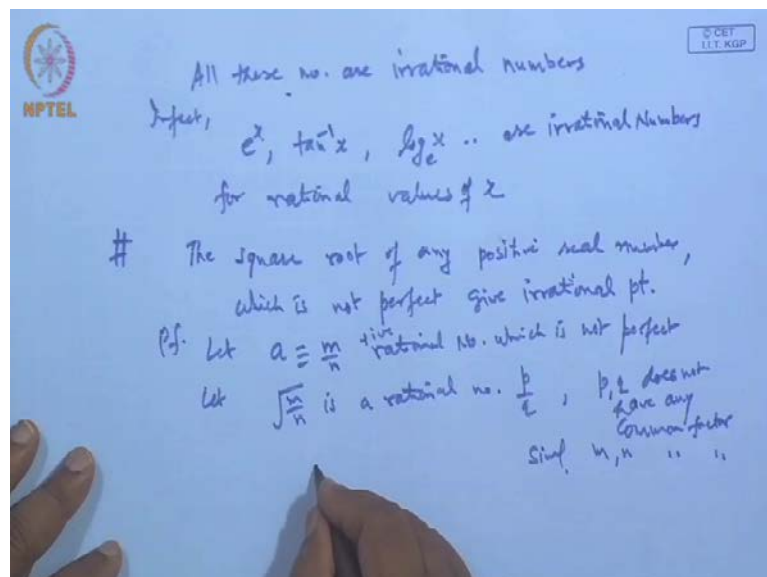 © CET
I.I.T. KGP
NPTEL
All these no. are irrational numbers
Infact,
e^x, tan^-1 x, log_e x .. are irrational Numbers
for rational values of x
# The square root of any positive real number,
which is not perfect give irrational pt.
Pf. Let a = m/n +ive rational No. which is not perfect
Let √(m/n) is a rational no. p/q , p,q does not
have any
common factor
Simil. m,n " "